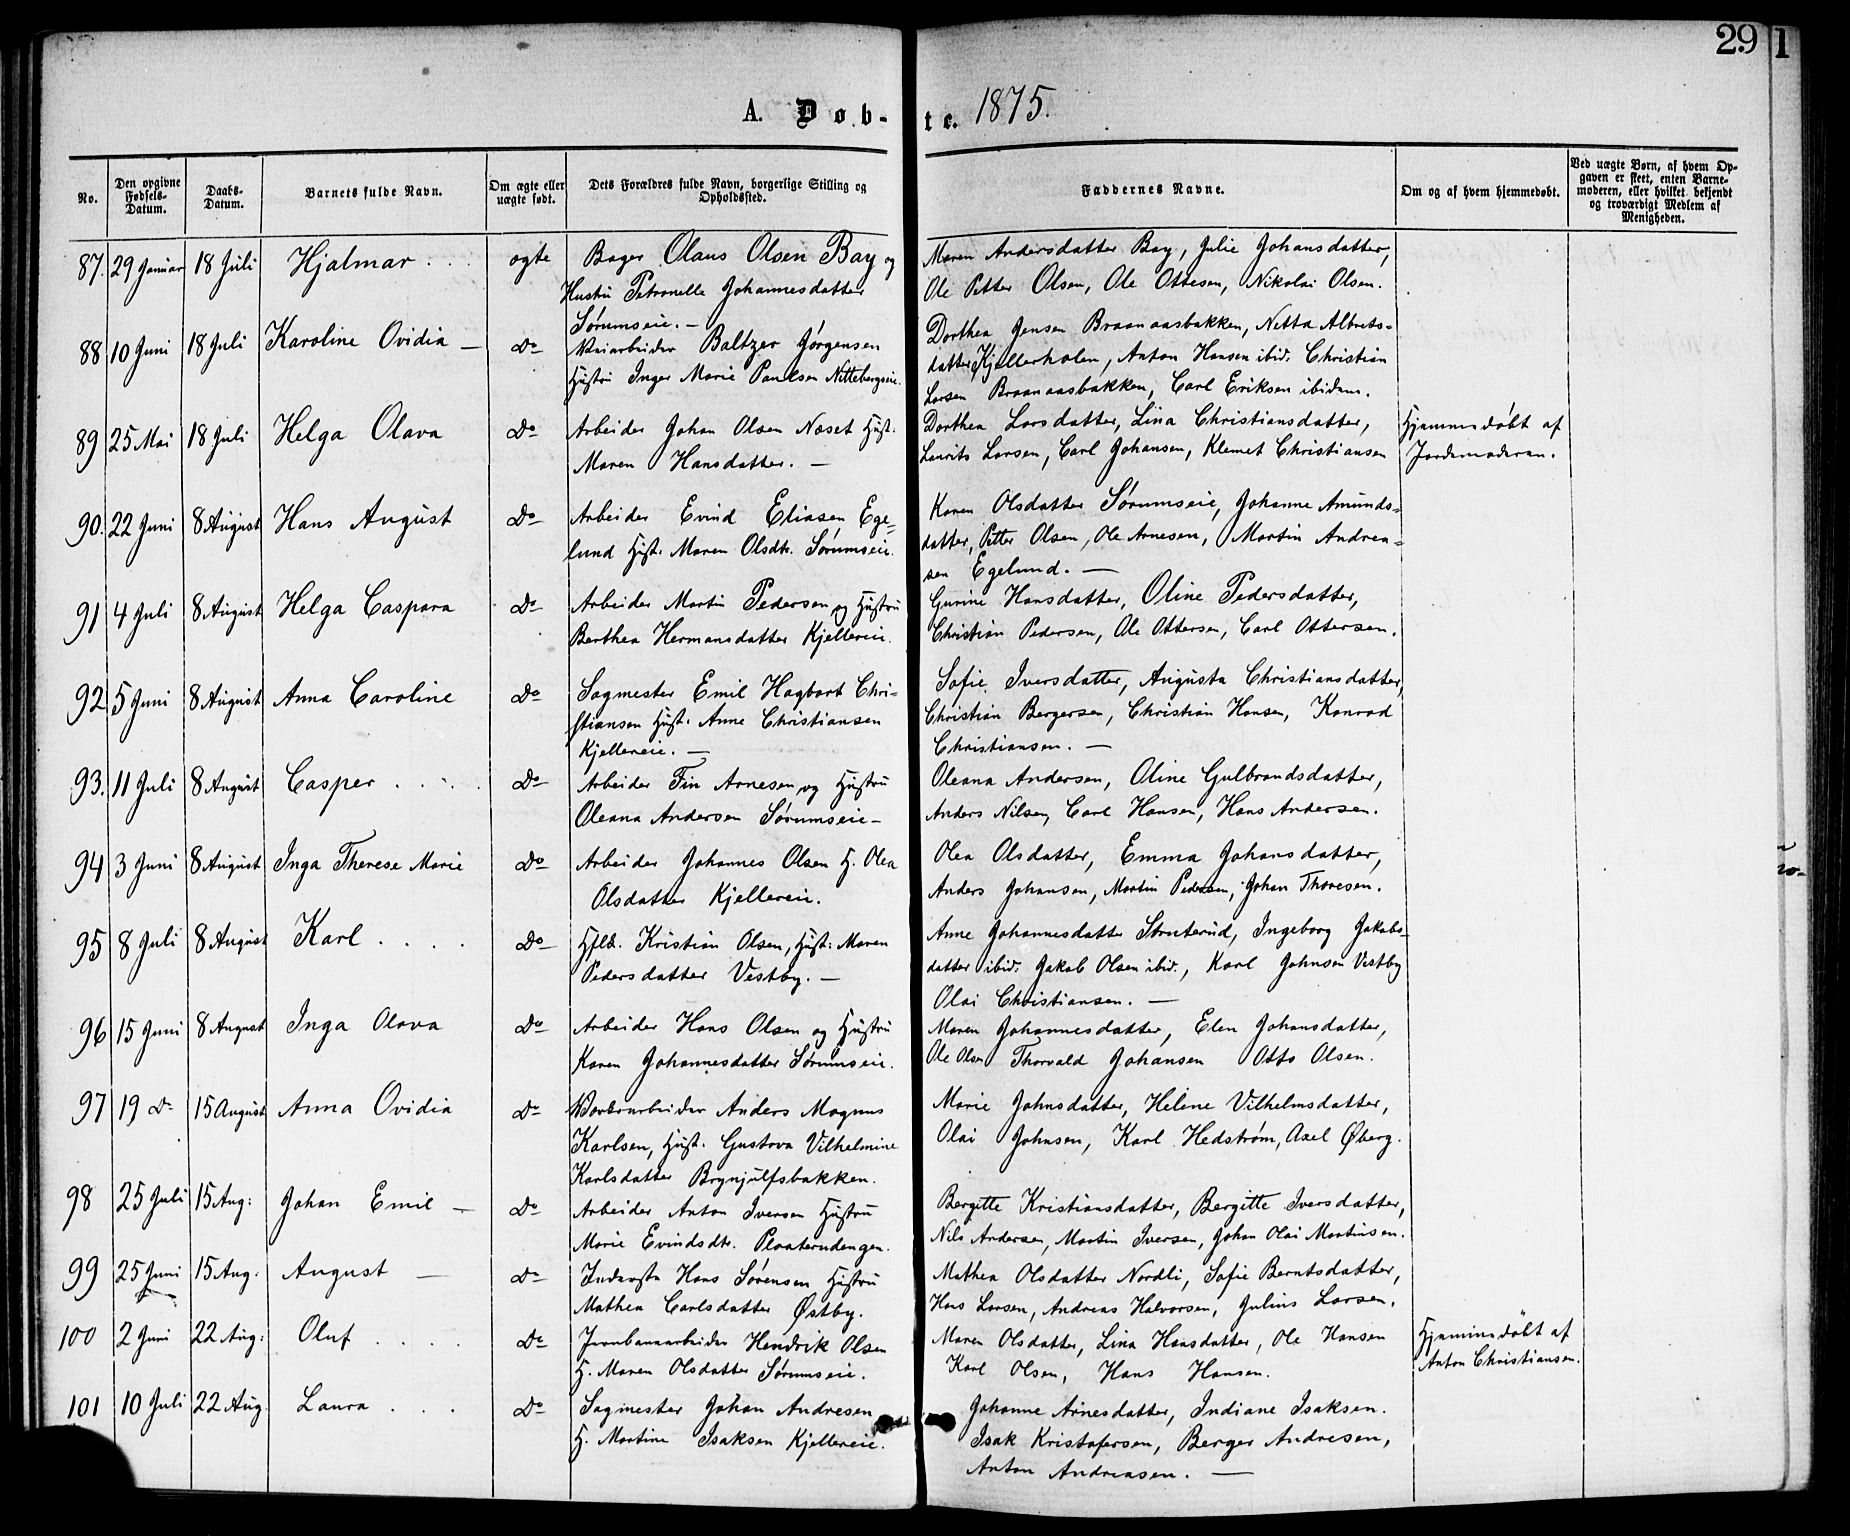 29
A. Døb-
te. 1875.
No.
Den opgivne
Fødsels-
Datum.
Daabs-
Datum.
Barnets fulde Navn.
Om ægte eller
uægte født.
Dets Forældres fulde Navn, borgerlige Stilling og
Opholdssted.
Faddernes Navne.
Om og af hvem hjemmedøbt.
Ved uægte Børn, af hvem Op-
gaven er skeet, enten Barne-
moderen, eller hvilket bekjendt
og troværdigt Medlem af
Menigheden.
87. 29 Januar 18 Juli Hjalmar . . . ægte Bager Olaus Olsen Bay og
Hustru Petronelle Johannesdatter
Sørumseie. —
Maren Andersdatter Bay, Julie Johansdatter,
Ole Petter Olsen, Ole Ottesen, Nikolai Olsen.
88 10 Juni 18 Juli Karoline Ovidia — Do Veiarbeider Baltzer Jørgensen
Hustru Inger Marie Paulsen Nittebergseie.
Dorthea Jensen Braanaasbakken, Netta Albrets-
datter Kjellerholen, Anton Hansen ibid. Christian
Larsen Braanaasbakken, Carl Eriksen ibidem.
89 25 Mai 18 Juli Helga Olava Do Arbeider Johan Olsen Næset Hust.
Maren Hansdatter. —
Dorthea Larsdatter, Lina Christiansdatter,
Laurits Larsen, Carl Johansen, Klemet Christiansen
Hjemmedøbt af
Jordemoderen.
90. 22 Juni 8 August Hans August Do Arbeider Evind Eliasen Ege-
lund Hust. Maren Olsdtr. Sørumseie.
Karen Olsdatter Sørumseie, Johanne Amunds-
datter, Petter Olsen, Ole Arnesen, Martin Andrea-
sen Egelund. —
91 4 Juli 8 August Helga Caspara Do Arbeider Martin Pedersen og Hustru
Berthea Hermansdatter Kjellereie.
Gurine Hansdatter, Oline Pedersdatter,
Christian Pedersen, Ole Ottersen, Carl Ottersen.
92 5 Juni 8 August Anna Caroline Do Sagmester Emil Hagbart Chri-
stiansen Hust. Anne Christiansen
Kjellereie. —
Sofie Iversdatter, Augusta Christiansdatter,
Christian Bergersen, Christian Hansen, Konrad
Christiansen. —
93. 11 Juli 8 August Casper . . . . Do Arbeider Fin Arnesen og Hustru
Oleana Andersen Sørumseie —
Oleana Andersen, Oline Gulbrandsdatter,
Anders Nilsen, Carl Hansen, Hans Andersen.
94 3 Juni 8 August Inga Therese Marie Do Arbeider Johannes Olsen H. Olea
Olsdatter Kjellereie.
Olea Olsdatter, Emma Johansdatter,
Anders Johansen, Martin Pedersen, Johan Thoresen.
95 8 Juli 8 August Karl . . . . Do Hflb. Kristian Olsen, Hust: Maren
Pedersdatter Vestby. —
Anne Johannesdatter Struterud, Ingeborg Jakobs-
datter ibid. Jakob Olsen ibid., Karl Johnsen Vestby
Olai Christiansen. —
96 15 Juni 8 August Inga Olava Do Arbeider Hans Olsen og Hustru
Karen Johannesdatter Sørumseie.
Maren Johannesdatter, Elen Johansdatter,
Ole Olsen Thorvald Johansen Otto Olsen.
97 19 Do 15 August Anna Ovidia Do Værksarbeider Anders Magnus
Karlsen, Hust. Gustava Vilhelmine
Karlsdatter Brynjulfsbakken.
Marie Johnsdatter, Helene Vilhelmsdatter,
Olai Johnsen, Karl Hedstrøm, Axel Øberg.
98 25 Juli 15 Aug: Johan Emil — Do Arbeider Anton Iversen Hustru
Marie Evindsdtr. Plaaterudengen.
Bergitte Kristiansdatter, Bergitte Iversdatter,
Nils Andersen, Martin Iversen, Johan Olai Martinsen.
99 25 Juni 15 Aug. August — Do Inderste Hans Sørensen Hustru
Mathea Carlsdatter Østby.
Mathea Olsdatter Nordli, Sofie Berntsdatter,
Hans Larsen, Andreas Halvorsen, Julius Larsen.
100 2 Juni 22 Aug: Oluf . . . . Do Jernbanearbeider Hendrik Olsen
H. Maren Olsdatter Sørumseie.
Maren Olsdatter, Lina Hansdatter, Ole Hansen
Karl Olsen, Hans Hansen.
Hjemmedøbt af
Anton Christiansen.
101 10 Juli 22 Aug. Laura . . . Do Sagmester Johan Andresen
H. Martine Isaksen Kjellereie.
Johanne Arnesdatter, Indiane Isaksen.
Isak Kristofersen, Berger Andresen,
Anton Andreasen. —